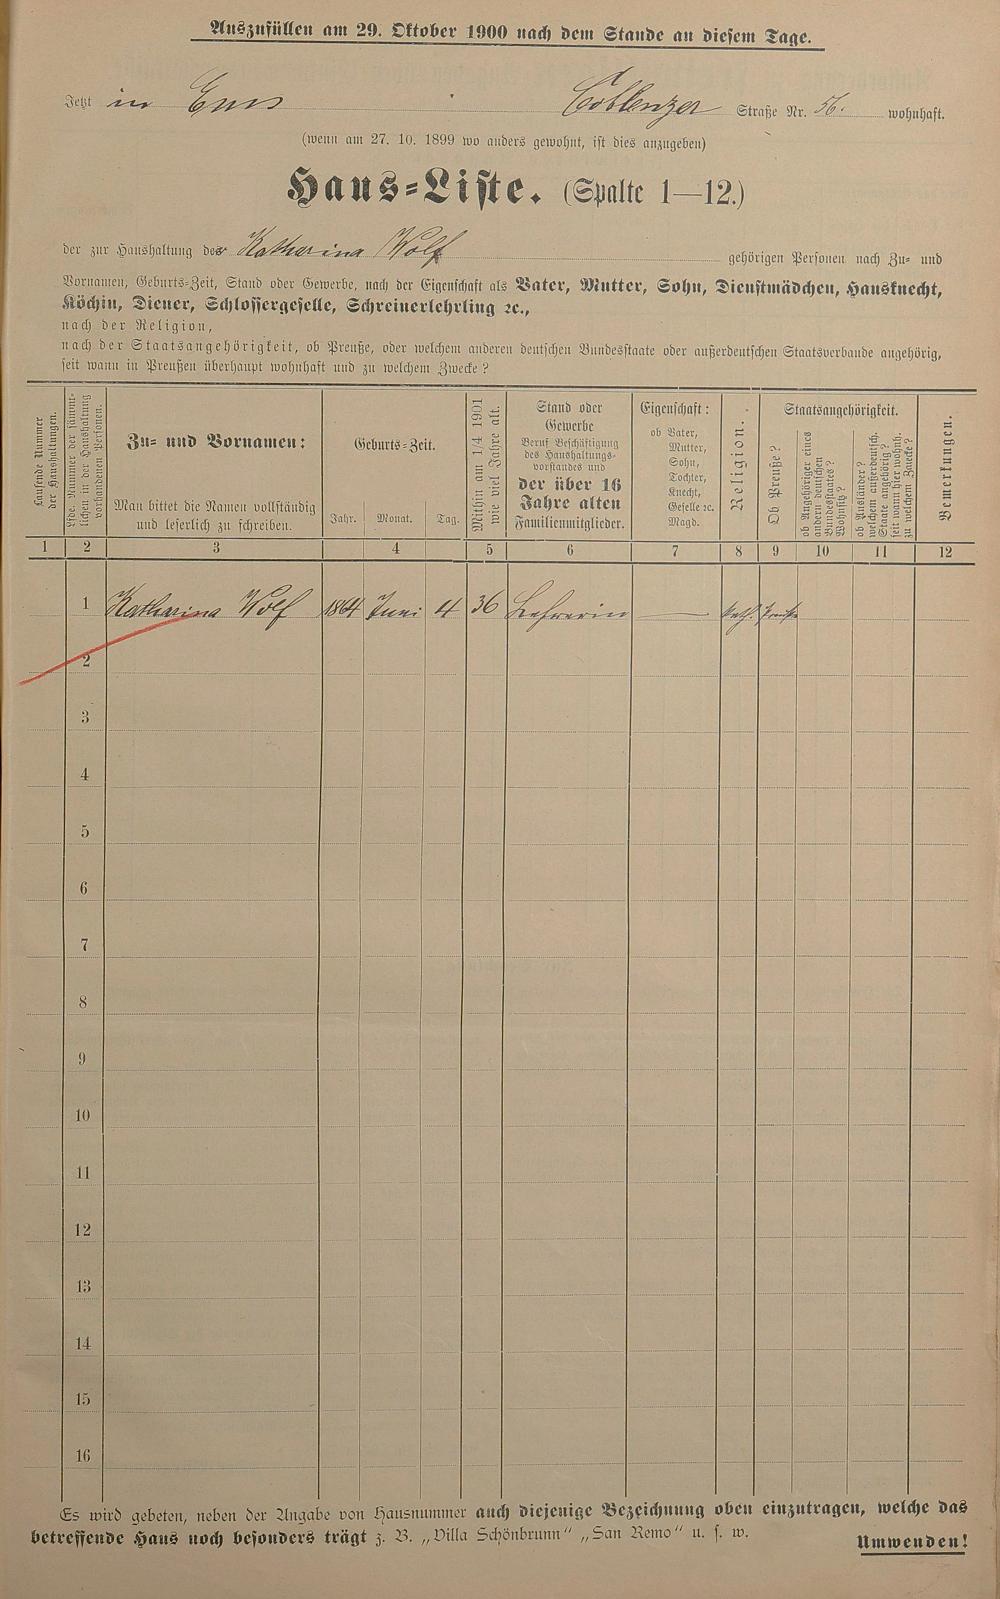 Auszufüllen am 29. Oktober 1900 nach dem Stande an diesem Tage.
Jetzt in Ems Coblenzer Straße Nr. 56. wohnhaft.
(wenn am 27. 10. 1899 wo anders gewohnt, ist dies anzugeben)
Haus=Liste. (Spalte 1—12.)
der zur Haushaltung der Katharina Wolf gehörigen Personen nach Zu= und
Vornamen, Geburts=Zeit, Stand oder Gewerbe, nach der Eigenschaft als Vater, Mutter, Sohn, Dienstmädchen, Hausknecht,
Köchin, Diener, Schlossergeselle, Schreinerlehrling ꝛc.,
nach der Religion,
nach der Staatsangehörigkeit, ob Preuße, oder welchem anderen deutschen Bundesstaate oder außerdeutschen Staatsverbande angehörig,
seit wann in Preußen überhaupt wohnhaft und zu welchem Zwecke?
Laufende Nummer
der Haushaltungen.
Lfde. Nummer der sämmt-
lichen in der Haushaltung
vorhandenen Personen.
Zu= und Vornamen:
Man bittet die Namen vollständig
und leserlich zu schreiben.
Geburts=Zeit.
Jahr. Monat. Tag.
Mithin am 1/4 1901
wie viel Jahre alt.
Stand oder
Gewerbe
Beruf Beschäftigung
des Haushaltungs-
vorstandes und
der über 16
Jahre alten
Familienmitglieder.
Eigenschaft:
ob Vater,
Mutter,
Sohn,
Tochter,
Knecht,
Geselle ꝛc.
Magd.
Religion.
Staatsangehörigkeit.
Ob Preuße?
ob Angehöriger eines
andern deutschen
Bundesstaates?
Wohnsitz?
ob Ausländer?
welchem außerdeutsch.
Staate angehörig?
seit wann hier wohnh.
zu welchem Zwecke?
Bemerkungen.
1 2 3 4 5 6 7 8 9 10 11 12
1 Katharina Wolf 1864 Juni 4 36 Lehrerin — kath. Preuße
2
3
4
5
6
7
8
9
10
11
12
13
14
15
16
Es wird gebeten, neben der Angabe von Hausnummer auch diejenige Bezeichnung oben einzutragen, welche das
betreffende Haus noch besonders trägt z. B. „Villa Schönbrunn“ „San Remo“ u. s. w.
Umwenden!